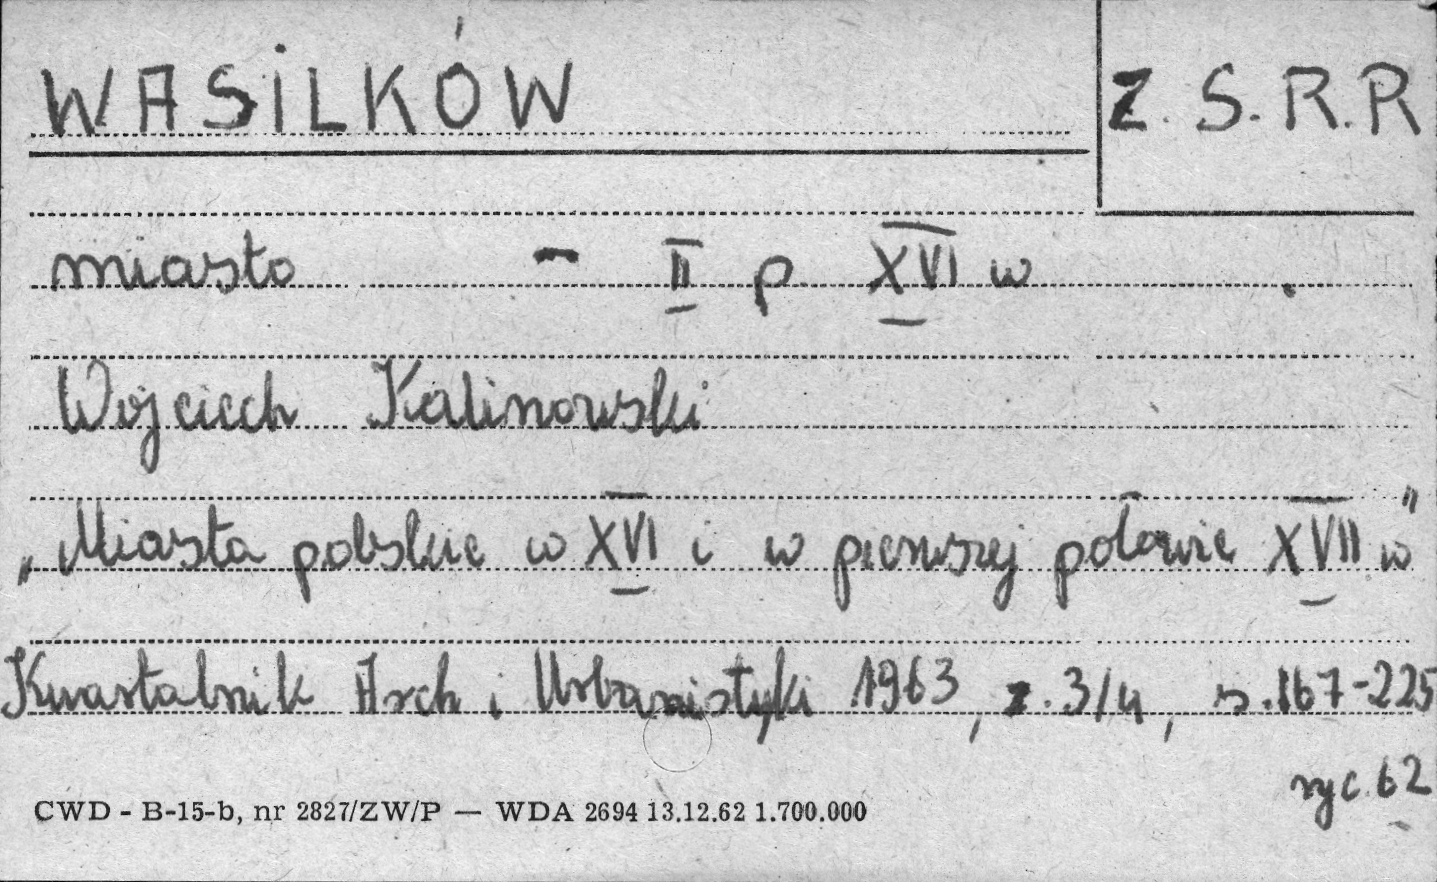 WASILKÓW Z.S.R.R
miasto - II p. XVI w.
Wojciech Kalinowski
„Miasta polskie w XVI i w pierwszej połowie XVII w"
Kwartalnik Arch i Urbanistyki 1963, z. 3/4, s. 167-225
ryc. 62
CWD - B-15-b, nr 2827/ZW/P — WDA 2694 13.12.62 1.700.000